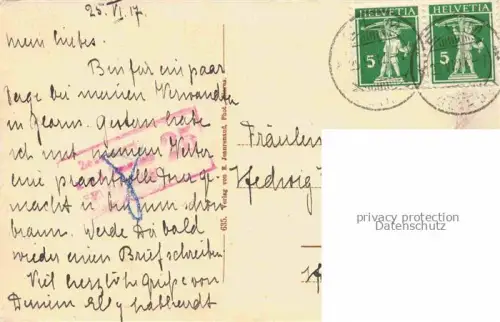 25. VI. 17.
Mein liebes.
Bin für ein paar
Tage bei meinen Verwandten
in Glarus. Gestern habe
ich mit meinem Vetter
eine prachtvolle Tour ge-
macht u. bin nun schon
braun. Werde Dir bald
wieder einen Brief schreiben
Viel herzliche Grüße von
Deinem
HELVETIA
5
HELVETIA
5
25
635. Verlag von
Fräulein
Hedwig
privacy protection
Datenschutz